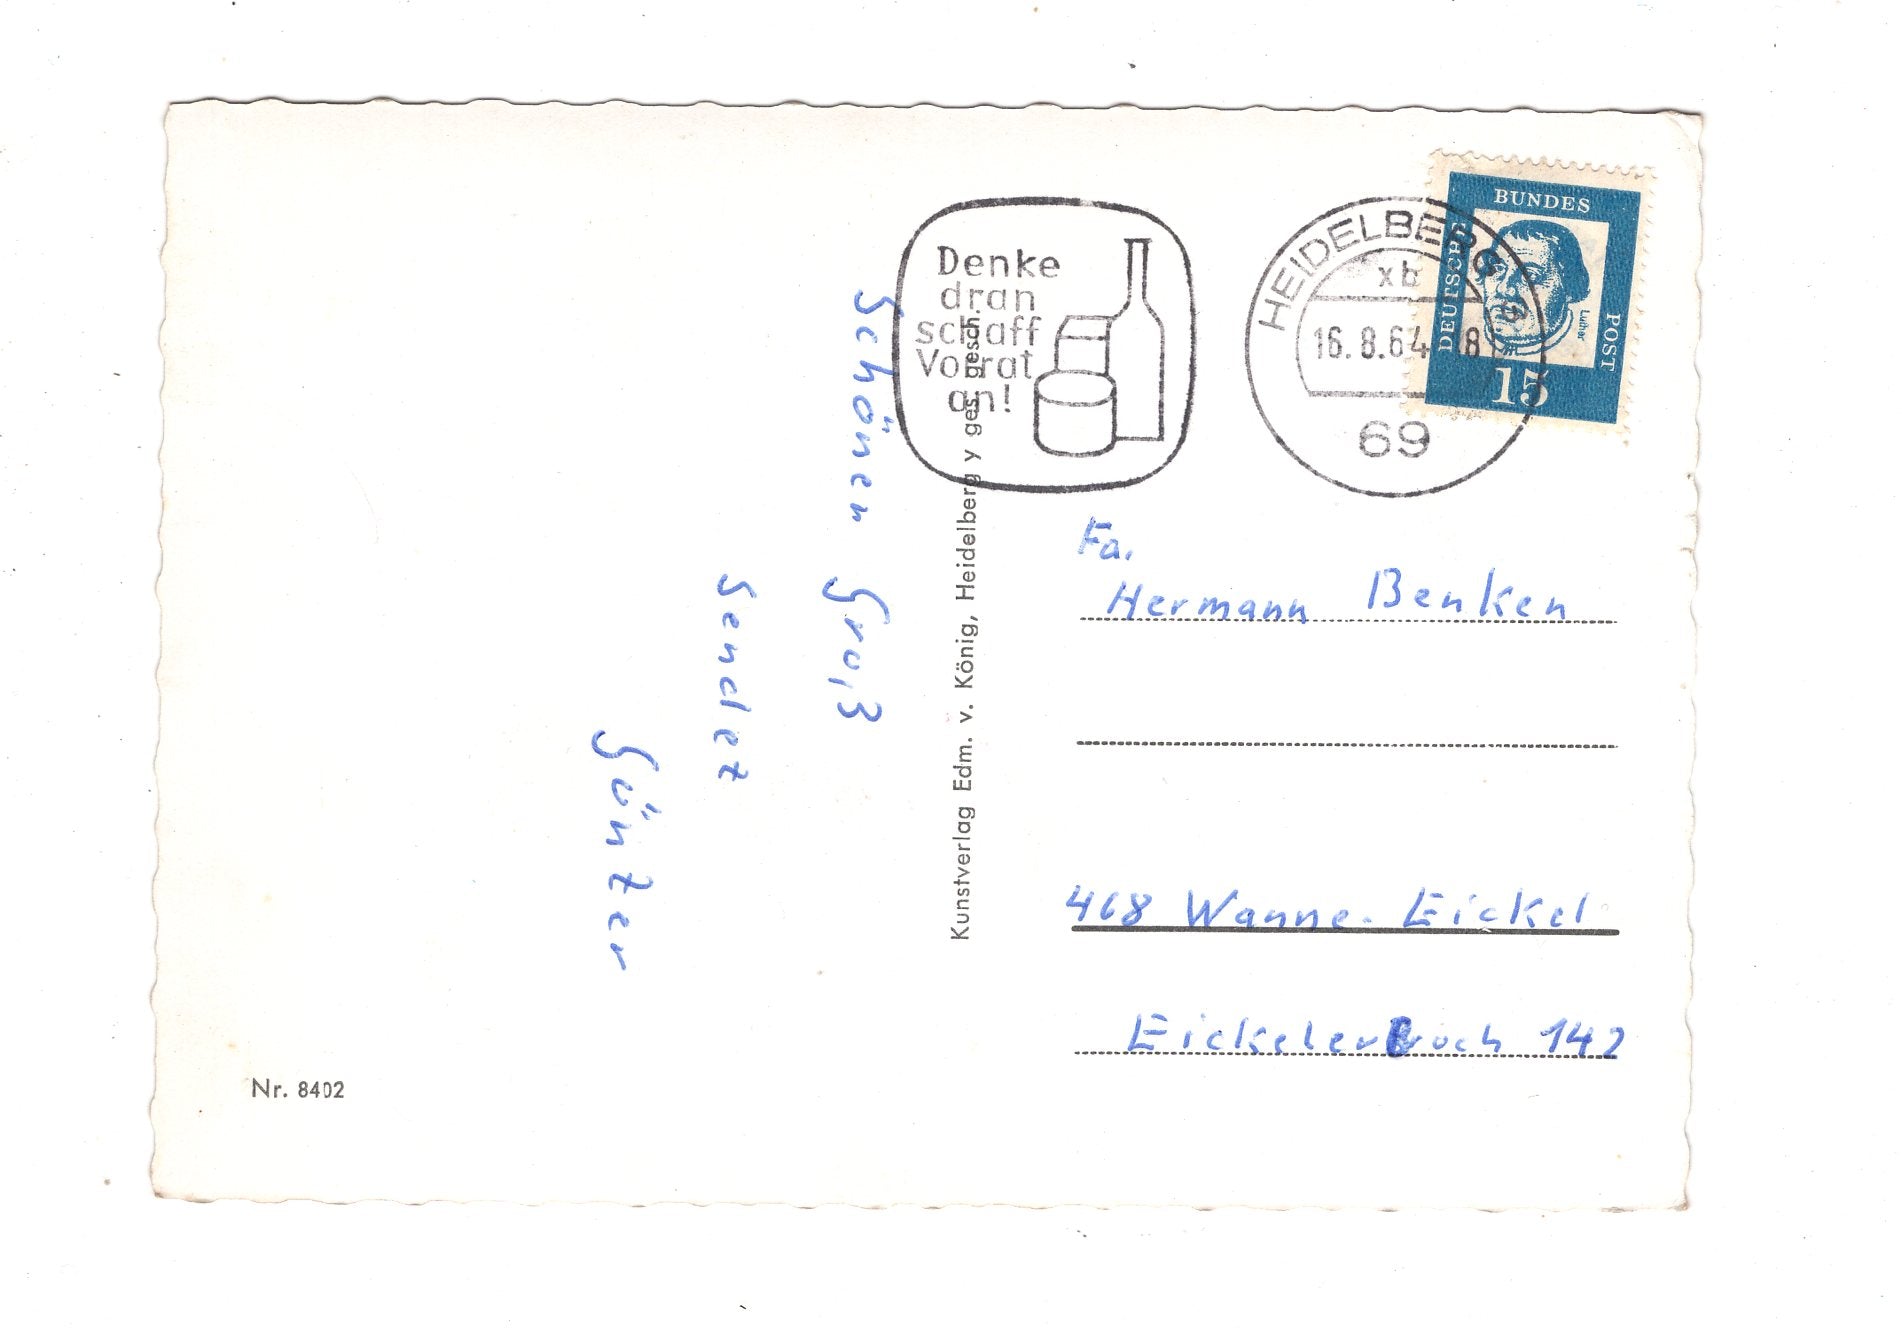 Schönen Gruß
sendet
Günter
Nr. 8402
Kunstverlag Edm. v. König, Heidelberg y ges. gesch.
Denke
dran
schaff
Vorrat
an!
HEIDELBERG
xb
16.8.64
8
69
DEUTSCHE
BUNDES
POST
Luther
15
Fa.
Hermann Benken
468 Wanne-Eickel
Eickelerbruch 142